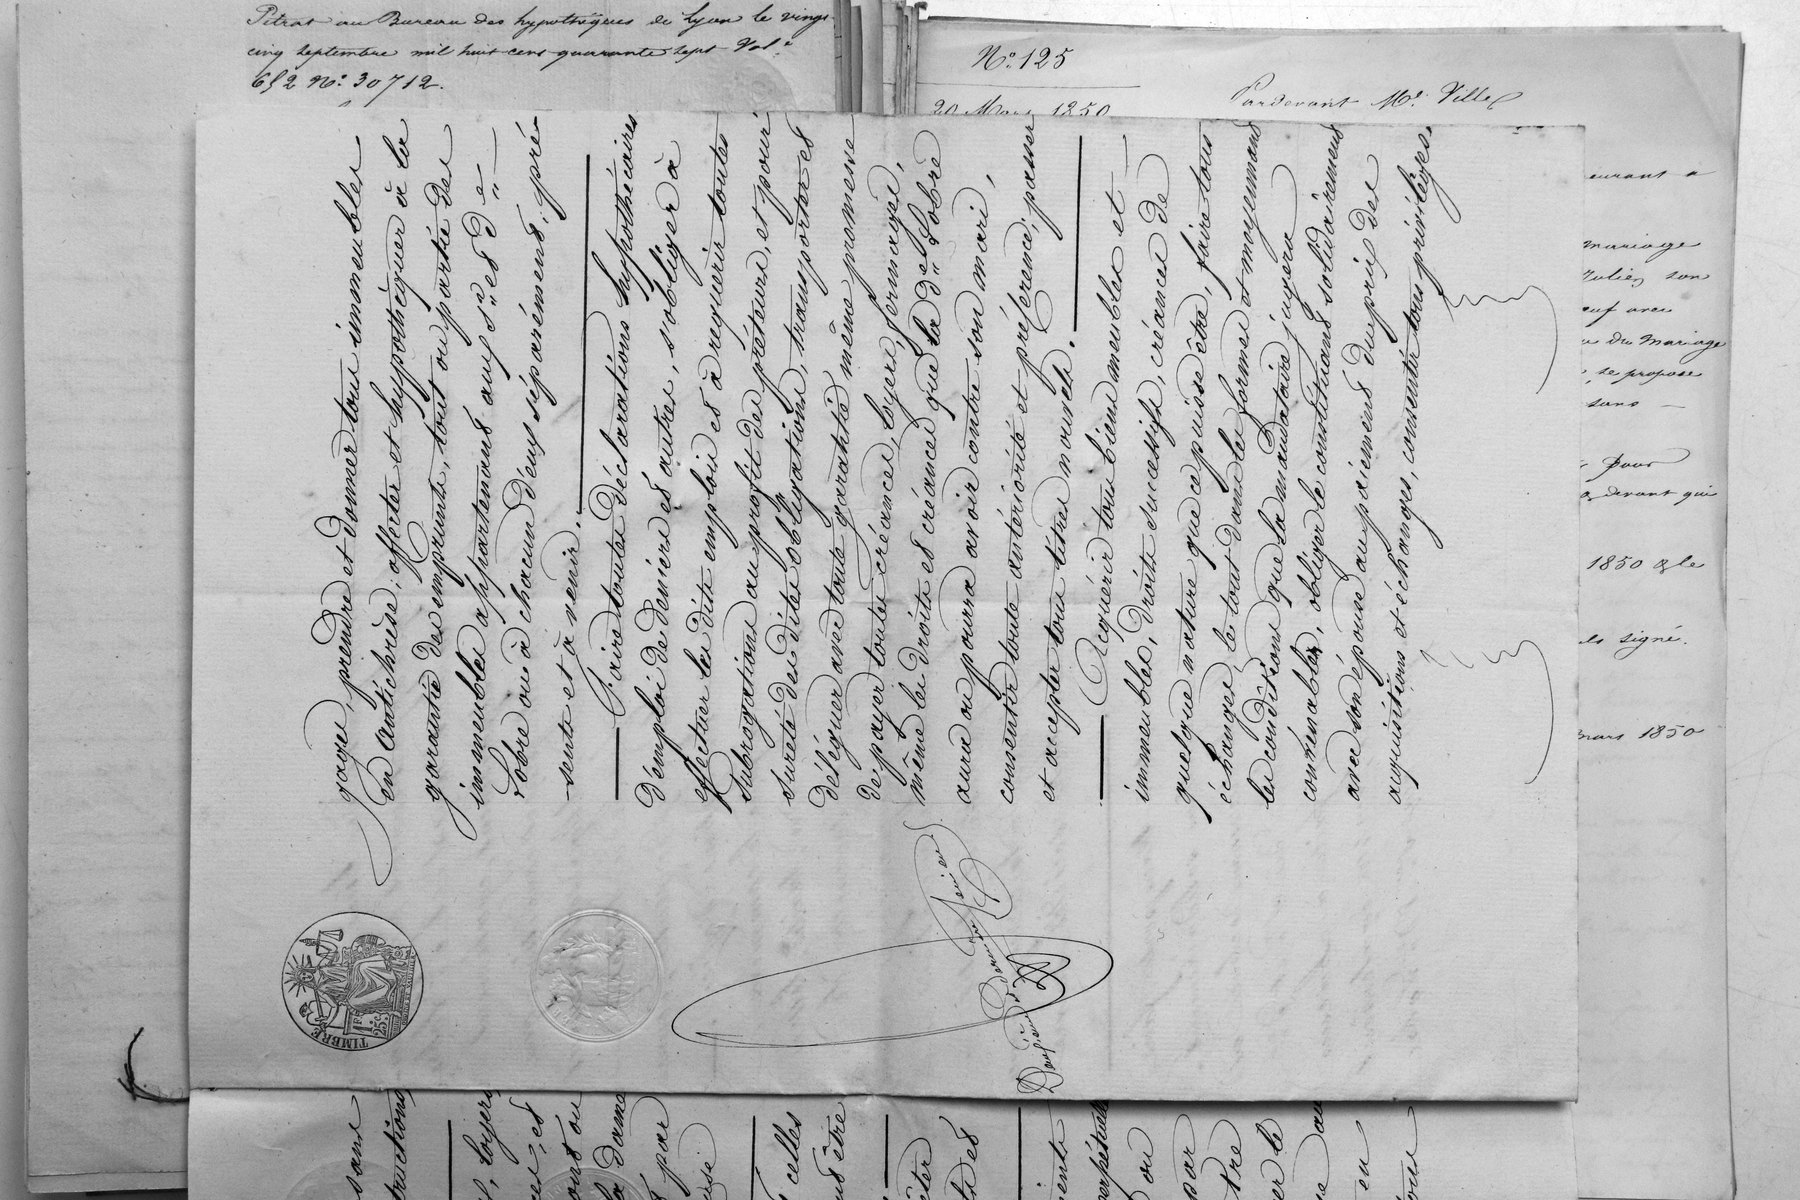 Pitrat au Bureau des hypothèques de Lyon le vingt
cinq septembre mil huit cent quarante sept Vol.
652 No. 30712.
No. 125
20 Mars 1850
Pardevant Me. Ville
gage, prendre et donner tous immeubles
en antichrèse, affecter et hypothèquer à la
garantie des emprunts, tout ou partie des
immeubles appartenant aux sr. et de.
Sobre ou à chacun d'eux séparément, pré
-sents et à venir.
Faire toutes déclarations hypothécaires
d'emploi de deniers et autres, s'obliger à
effectuer les dits emplois et à requérir toutes
subrogations au profit des prêteurs, et pour
sureté des dites obligations, transporter et
déléguer avec toute garantie même promesse
de payer toutes créances, loyers, fermages,
même les droits et créances que la de. Sobre
aura ou pourra avoir contre son mari,
consentir toute antériorité et préférence, passer
et accepter tous titres nouvels.
Acquérir tous biens meubles et
immeubles, droits successifs, créances de
quelque nature que ce puisse être, faire tous
échanges, le tout dans les formes et moyennant
les conditions que la mandataire jugera
convenables, obliger le constituant solidairement
avec son épouse au paiement du prix des
acquisitions et échanges, consentir tous privilèges
TIMBRE
1F
25c.
eurant à
mariage
Julie, son
euf avec
u du mariage
, se propose
sans
pour
devant qui
1850 & le
signé.
mars 1850
sans
tructions
, loyers
et
ou
dame
par
celles
être
et
ou
par
tre
er le
au
en